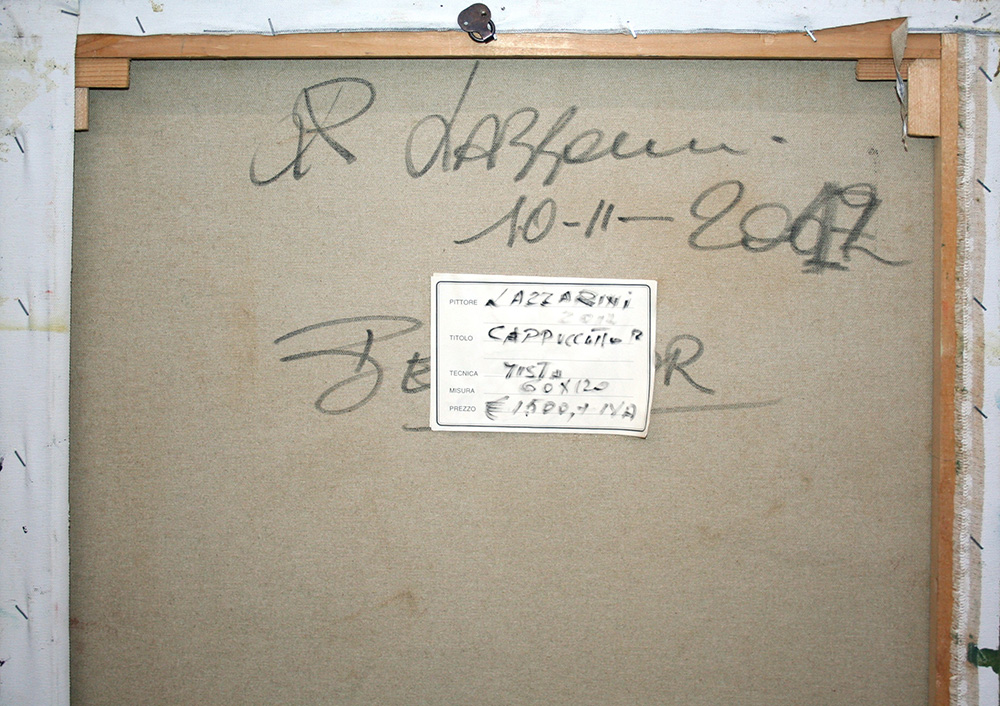 R Lazzarini.
10-11-2012
PITTORE LAZZARINI
2012
TITOLO CAPPUCCETTO R
TECNICA MISTA
MISURA 60X120
PREZZO € 1500,+ IVA